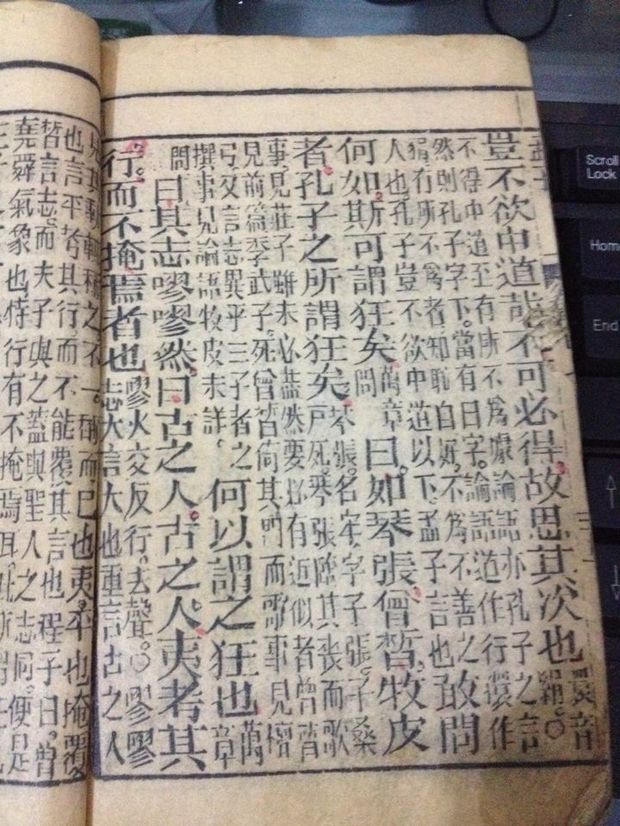 豈不欲中道哉不可必得故思其次也獧音
絹○
不得中道至有所不為據論語亦孔子之言
然則孔子字下當有曰字論語道作行獧作
狷有所不為者知恥自好不為不善之
人也孔子豈不欲中道以下孟子言也敢問
何如斯可謂狂矣萬章
問曰如琴張曾皙牧皮
者孔子之所謂狂矣琴張名牢字子張子桑
戶死琴張臨其喪而歌
事見莊子雖未必盡然要必有近似者曾皙
見前篇季武子死曾皙倚其門而歌事見檀
弓又言志異乎三子者之
撰事見論語牧皮未詳何以謂之狂也萬
章
問曰其志嘐嘐然曰古之人古之人夷考其
行而不掩焉者也嘐火交反行去聲○嘐嘐
志大言大也重言古之人
見其動輒稱之不一稱而已也夷平也掩覆
也言平考其行而不能覆其言也程子曰曾
皙言志而夫子與之蓋與聖人之志同便是
堯舜氣象也特行有不掩焉耳此所謂狂
Scroll
Lock
Home
End